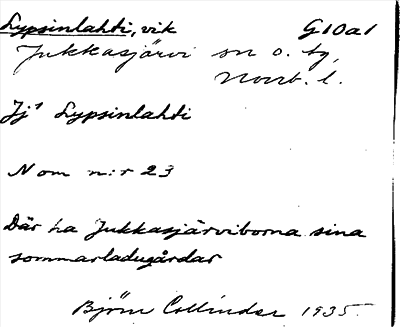 Lypsinlahti, vik G10a1
Jukkasjärvi sn o. tg,
Norrb. l.
Jj¹ Lypsinlahti
Nom n:r 23
Där ha Jukkasjärviborna sina
sommarladugårdar
Björn Collinder 1935.